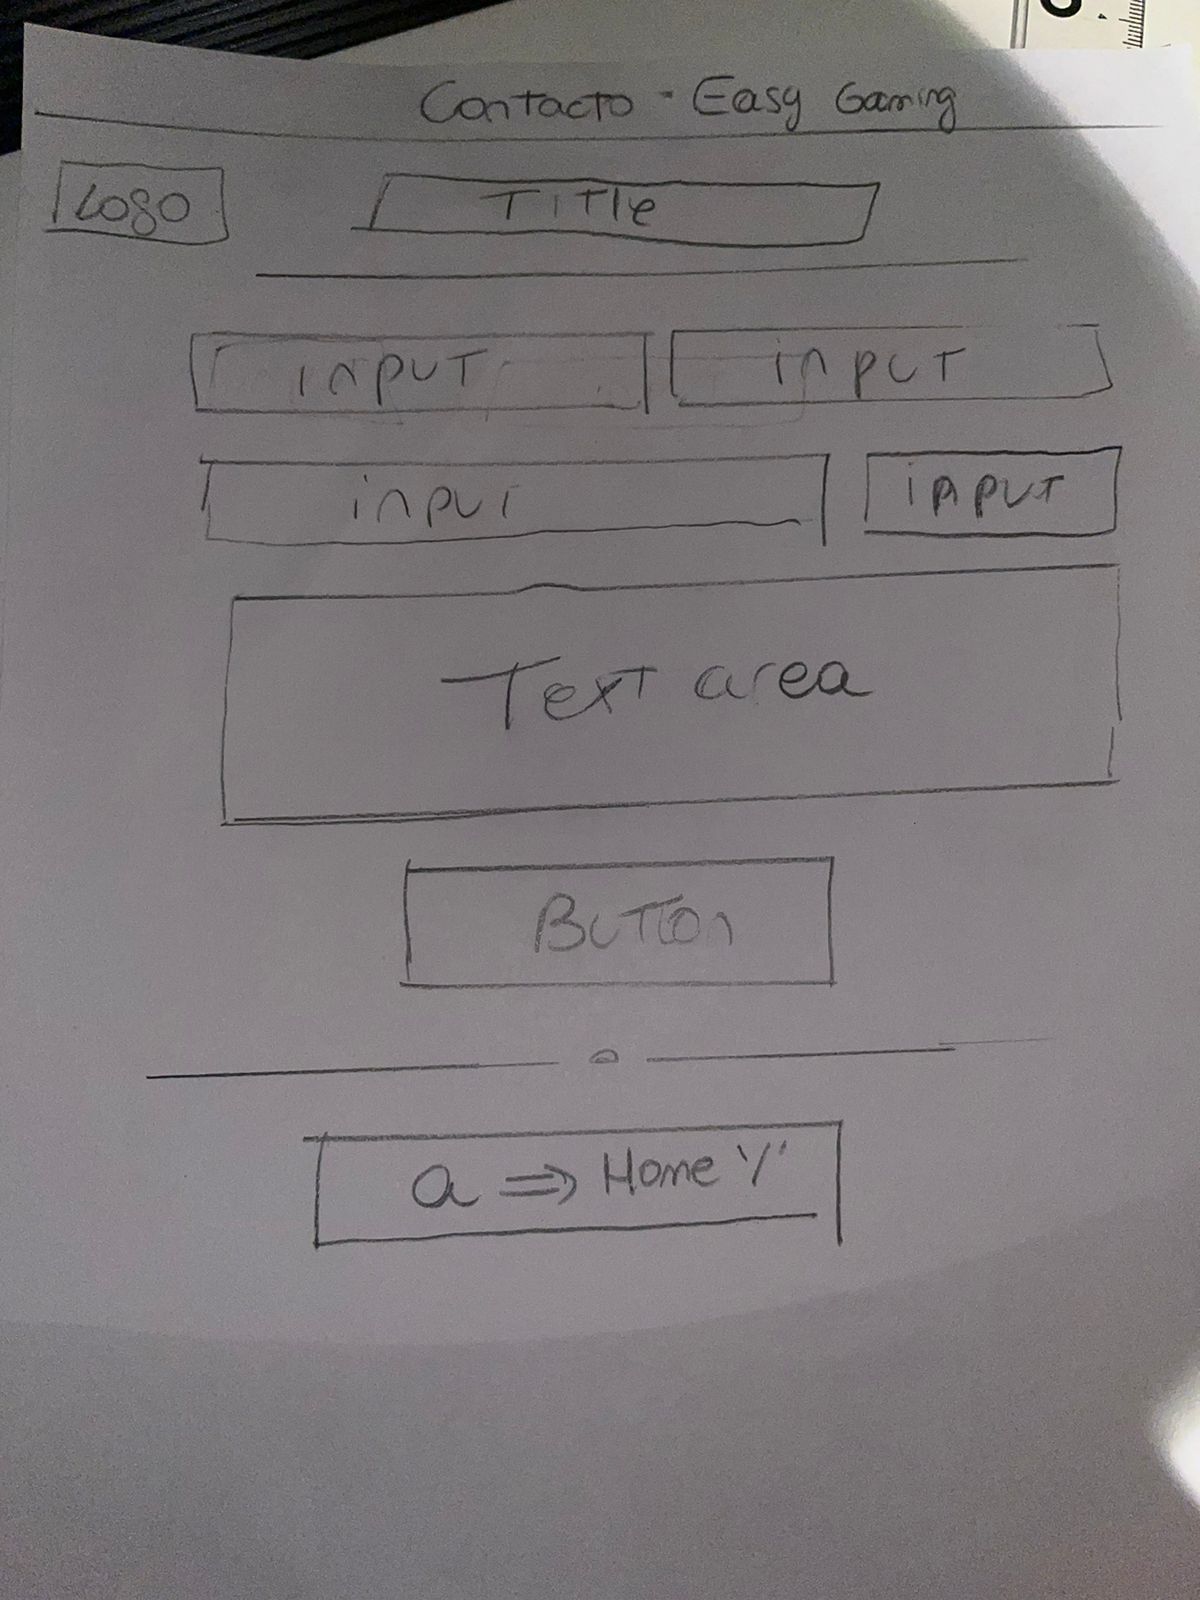 Contacto - Easy Gaming
Logo
Title
input
input
input
input
Text area
Button
a => Home '/'